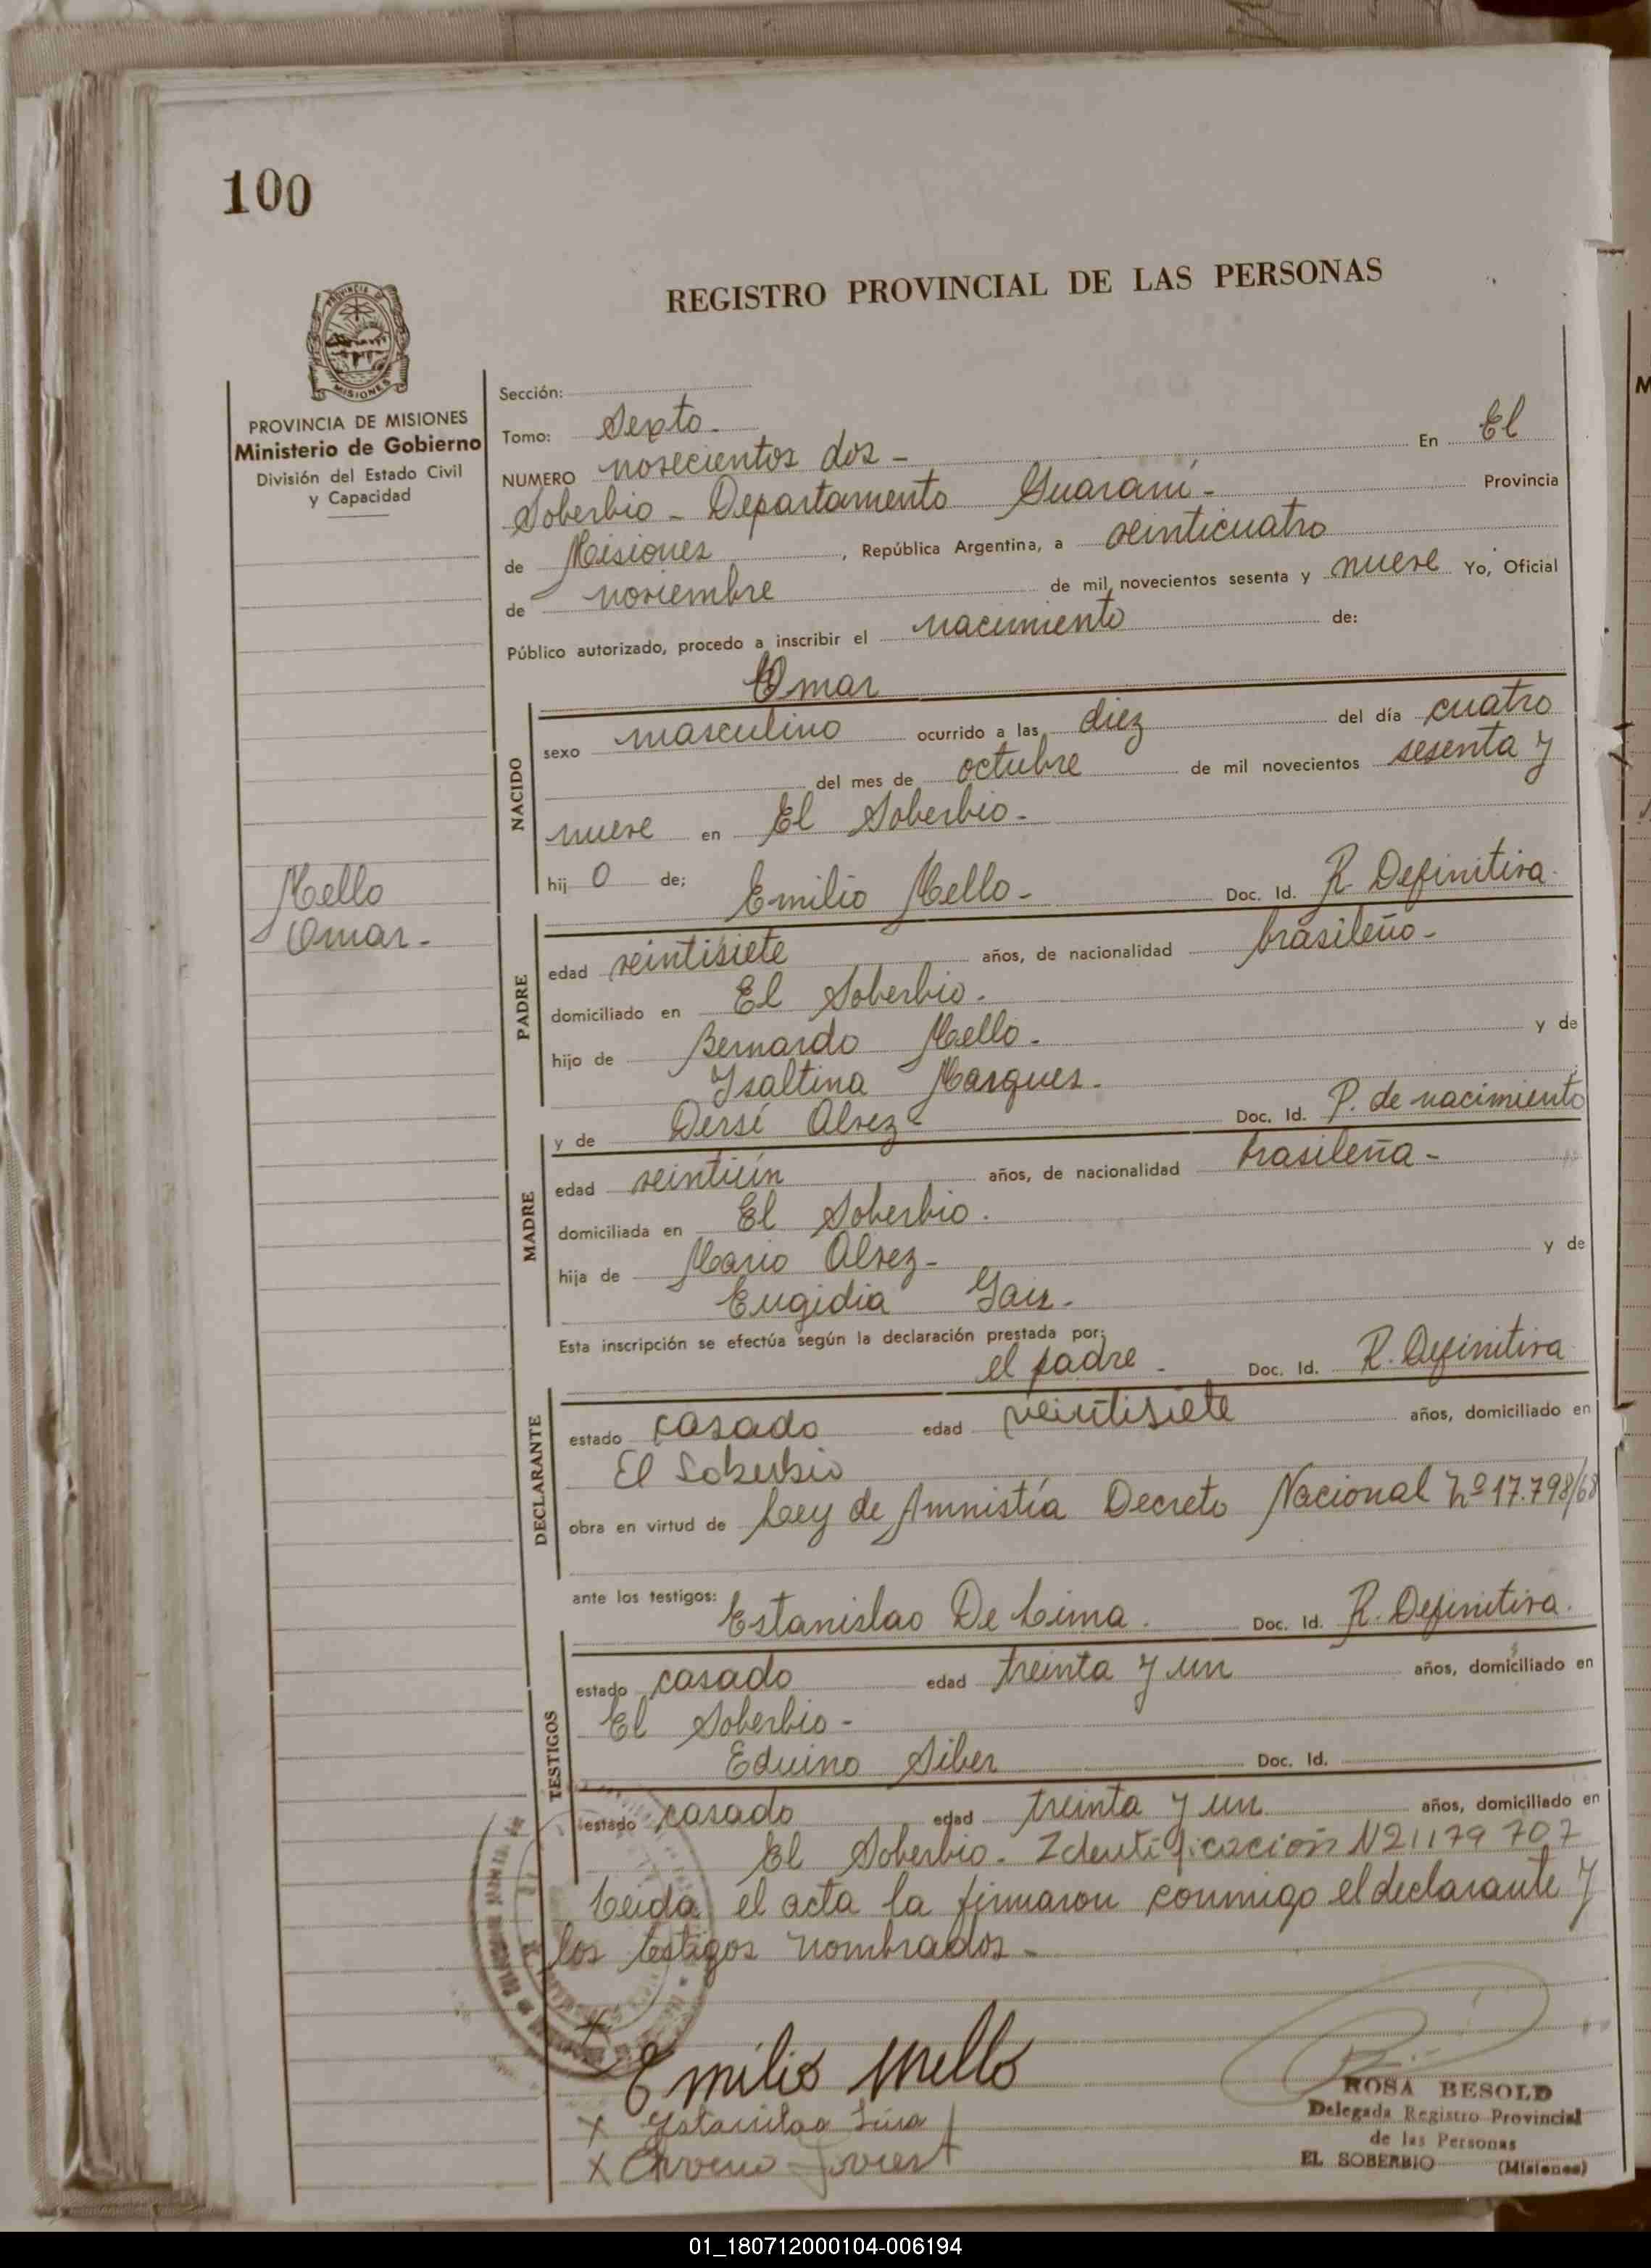 100
REGISTRO PROVINCIAL DE LAS PERSONAS
PROVINCIA DE MISIONES
MISIONES
PROVINCIA DE MISIONES
Ministerio de Gobierno
División del Estado Civil
y Capacidad
Mello
Omar-
Sección:
Tomo: Sexto-
NUMERO novecientos dos - En El
Soberbio - Departamento Guaraní- Provincia
de Misiones, República Argentina, a veinticuatro
de noviembre de mil novecientos sesenta y nueve Yo, Oficial
Público autorizado, procedo a inscribir el nacimiento de:
Omar
NACIDO
sexo masculino ocurrido a las diez del día cuatro
del mes de octubre de mil novecientos sesenta y
nueve en El Soberbio-
hij o de; Emilio Mello- Doc. Id. R. Definitiva.
PADRE
edad veintisiete años, de nacionalidad brasileño-
domiciliado en El Soberbio.
hijo de Bernardo Mello- y de
Ysaltina Marques.
y de Dersí Alvez- Doc. Id. P. de nacimiento
MADRE
edad veintiún años, de nacionalidad brasileña-
domiciliada en El Soberbio.
hija de Mario Alvez- y de
Eugidia
Esta inscripción se efectúa según la declaración prestada por;
el padre - Doc. Id. R. Definitiva
DECLARANTE
estado casado edad veintisiete años, domiciliado en
El Soberbio
obra en virtud de Ley de Amnistía Decreto Nacional Nº 17.798/68
ante los testigos: Estanislao De Lima. Doc. Id. R. Definitiva.
TESTIGOS
estado casado edad treinta y un años, domiciliado en
El Soberbio-
Eduino Siber Doc. Id.
estado casado edad treinta y un años, domiciliado en
El Soberbio- Identificación
Leida el acta la firmaron conmigo el declarante y
los testigos nombrados-
Emilio Mello
ROSA BESOLD
Delegada Registro Provincial
de las Personas
EL SOBERBIO (Misiones)
01_180712000104-006194